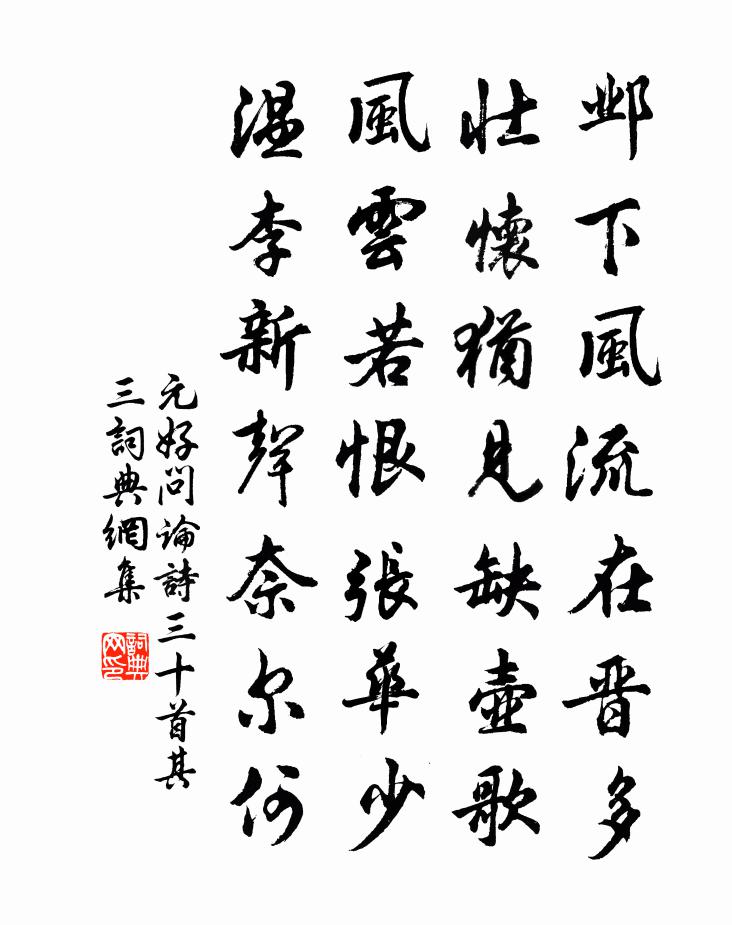 邺下風流在晋多
壮懷猶見缺壺歌
風雲若恨張華少
温李新聲奈尔何
元好问論詩三十首其
三詞典網集
詞典网印